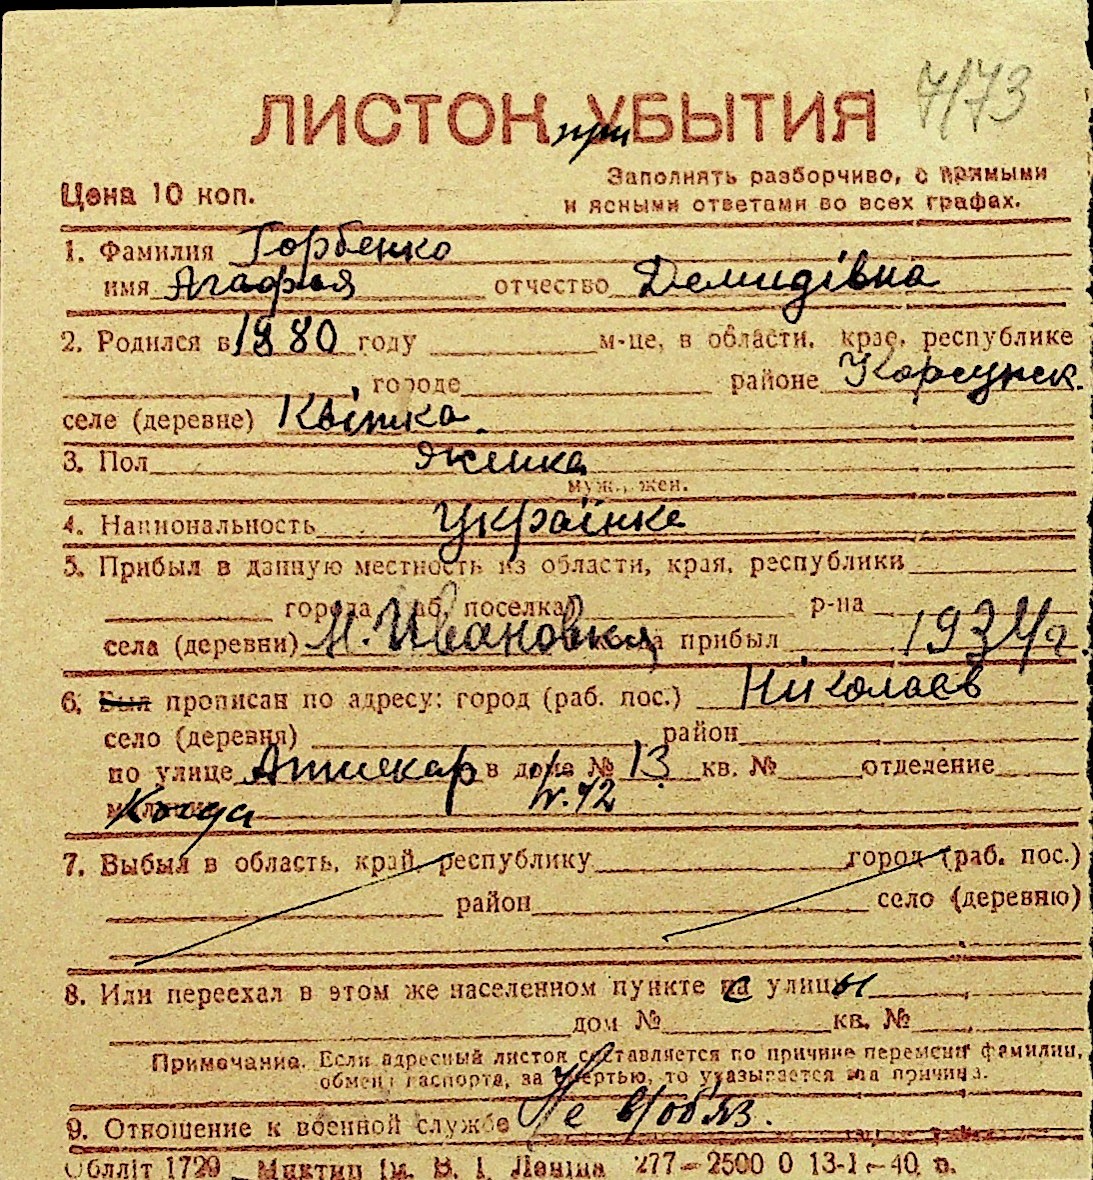 7/73
ЛИСТОК УБЫТИЯ
при
Цена 10 коп.
Заполнять разборчиво, с прямыми
и ясными ответами во всех графах.
1. Фамилия Горбенко
имя Агафья отчество Демидівна
2. Родился в 1880 году м-це, в области, крае, республике
городе районе Корсунск.
селе (деревне) Квітка
3. Пол женка
муж., жен.
4. Национальность Українка
5. Прибыл в данную местность из области, края, республики
города раб. поселка) р-на
села (деревни) М. Ивановка прибыл 1934 г.
6. Был прописан по адресу: город (раб. пос.) Ніколаев
село (деревня) район
по улице в доме № 13 кв. № отделение
милиции
7. Выбыл в область, край, республику город (раб. пос.)
район село (деревню)
8. Или переехал в этом же населенном пункте с улицы
дом № кв. №
Примечание. Если адресный листок составляется по причине перемены фамилии,
обмена паспорта, за смертью, то указывается эта причина.
9. Отношение к военной службе Не в/обяз.
Облліт 1729 ім. В. І. Леніна 277—2500 0 13-I—40 р.